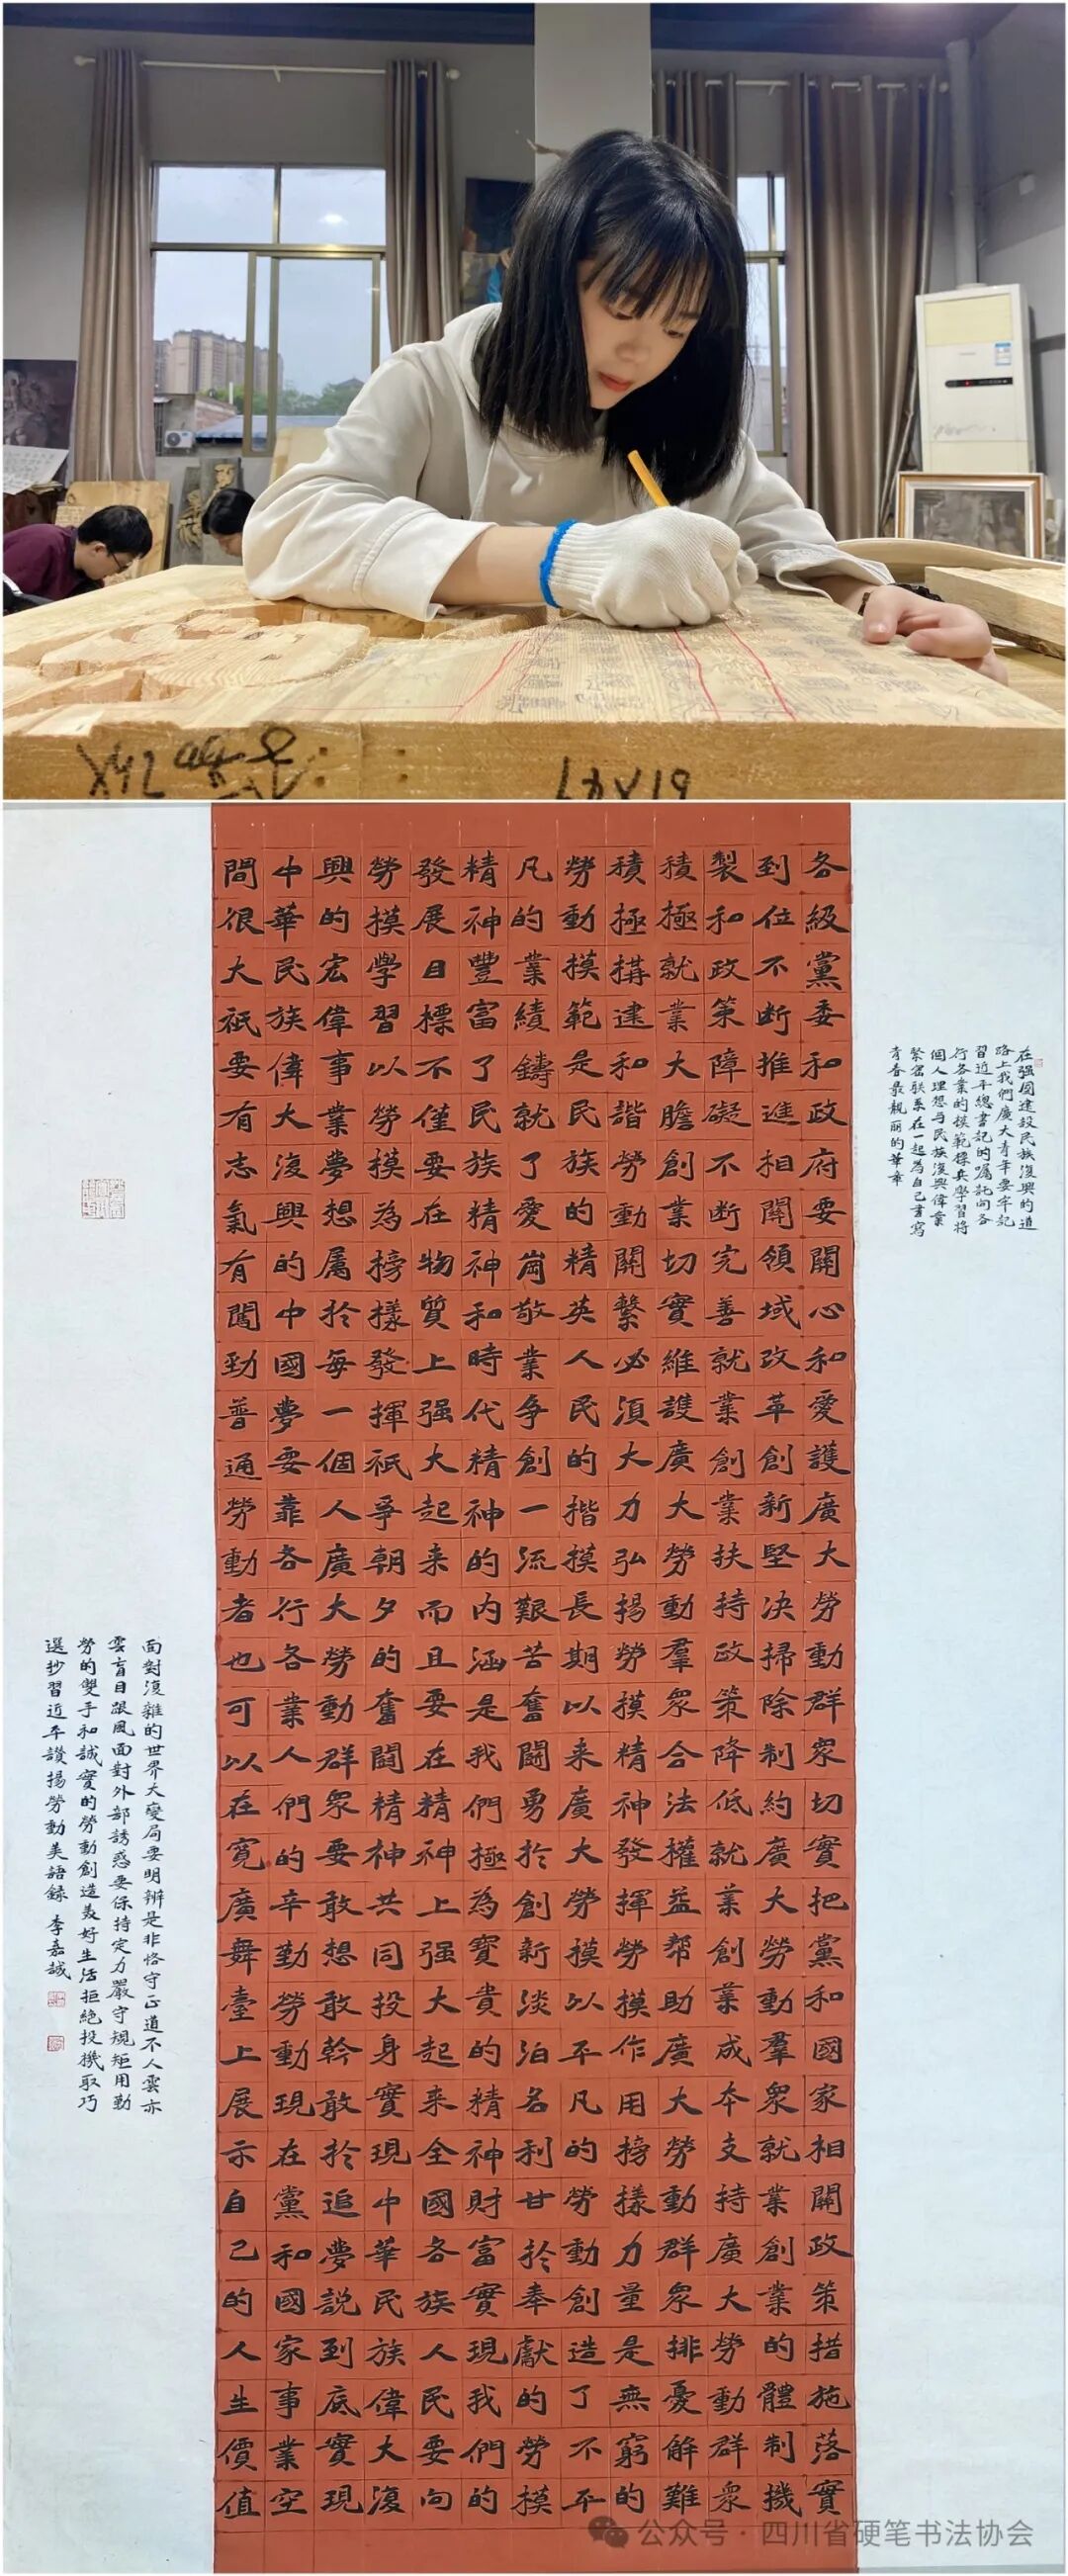 在强國建設民族復興的道
路上我們廣大青年要牢記
習近平總書記的囑託向各
行各業的模範標兵學習将
個人理想与民族復興偉業
緊密联系在一起為自己書寫
青春最靓丽的華章
各級黨委和政府要關心和愛護廣大勞動群眾切實把黨和國家相關政策措施落實
到位不断推進相關領域改革創新堅决掃除制約廣大勞動羣眾就業創業的體制機
製和政策障礙不断完善就業創業扶持政策降低就業創業成本支持廣大勞動群眾
積極就業大膽創業切實維護廣大勞動羣眾合法權益幫助廣大勞動群眾排憂解難
積極搆建和諧勞動關繫必須大力弘揚勞摸精神發揮勞摸作用榜樣力量是無窮的
勞動摸範是民族的精英人民的揩摸長期以来廣大勞摸以平凡的勞動創造了不平
凡的業績鑄就了愛崗敬業争創一流艱苦奮鬪勇於創新淡泊名利甘於奉獻的勞摸
精神豐富了民族精神和時代精神的内涵是我們極為寶貴的精神財富實現我們的
發展目標不僅要在物質上强大起来而且要在精神上强大起来全國各族人民要向
勞摸學習以勞摸為榜樣發揮祇争朝夕的奮鬪精神共同投身實現中華民族偉大復
興的宏偉事業夢想属於每一個人廣大勞動群眾要敢想敢幹敢於追夢説到底實現
中華民族偉大復興的中國夢要靠各行各業人們的辛勤勞動現在黨和國家事業空
間很大祇要有志氣有闖勁普通勞動者也可以在寛廣舞臺上展示自己的人生價值
面對復雜的世界大變局要明辨是非恪守正道不人雲亦
雲盲目跟風面對外部誘惑要保持定力嚴守規矩用勤
勞的雙手和誠實的勞動創造美好生活拒絶投機取巧
選抄習近平讃揚勞動美語録 李嘉誠
公众号·四川省硬笔书法协会